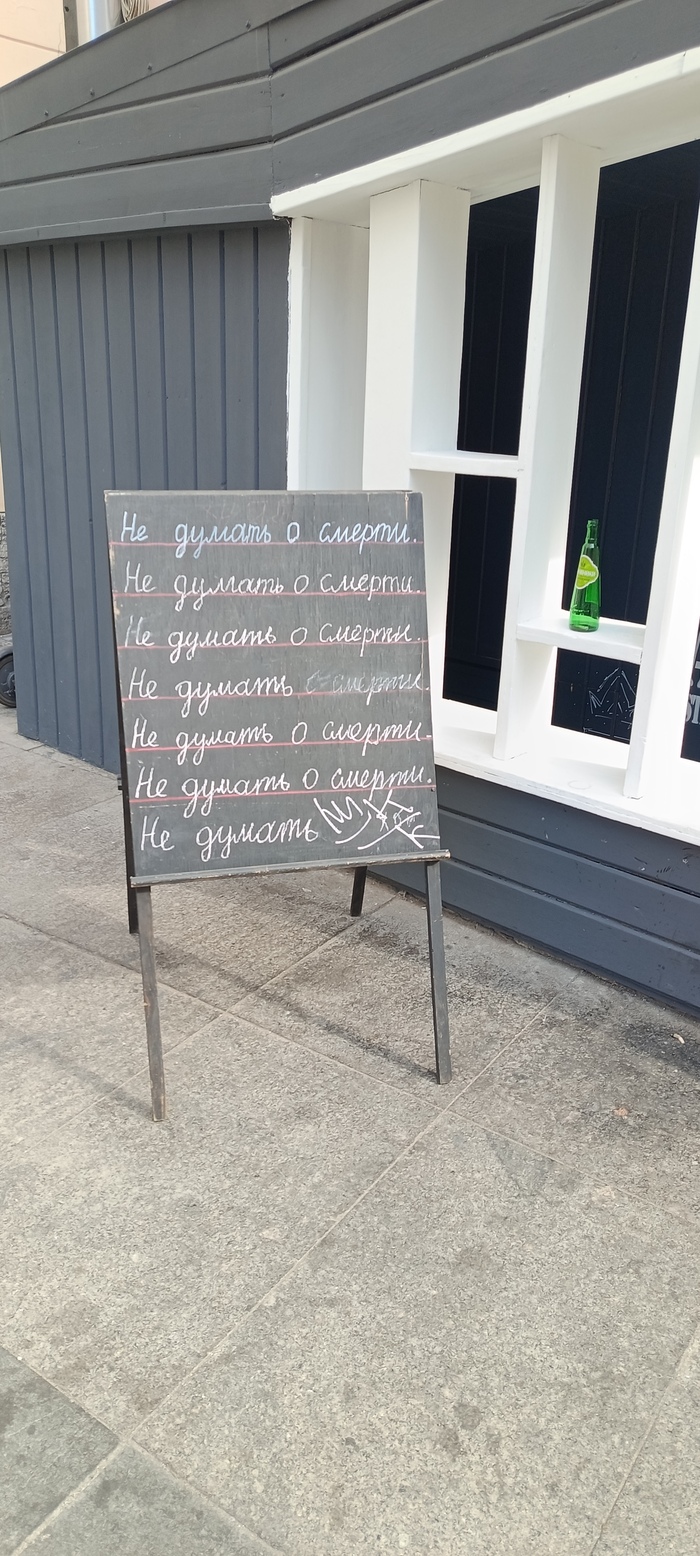 Не думать о смерти.
Не думать о смерти.
Не думать о смерти.
Не думать о смерти.
Не думать о смерти.
Не думать о смерти.
Не думать